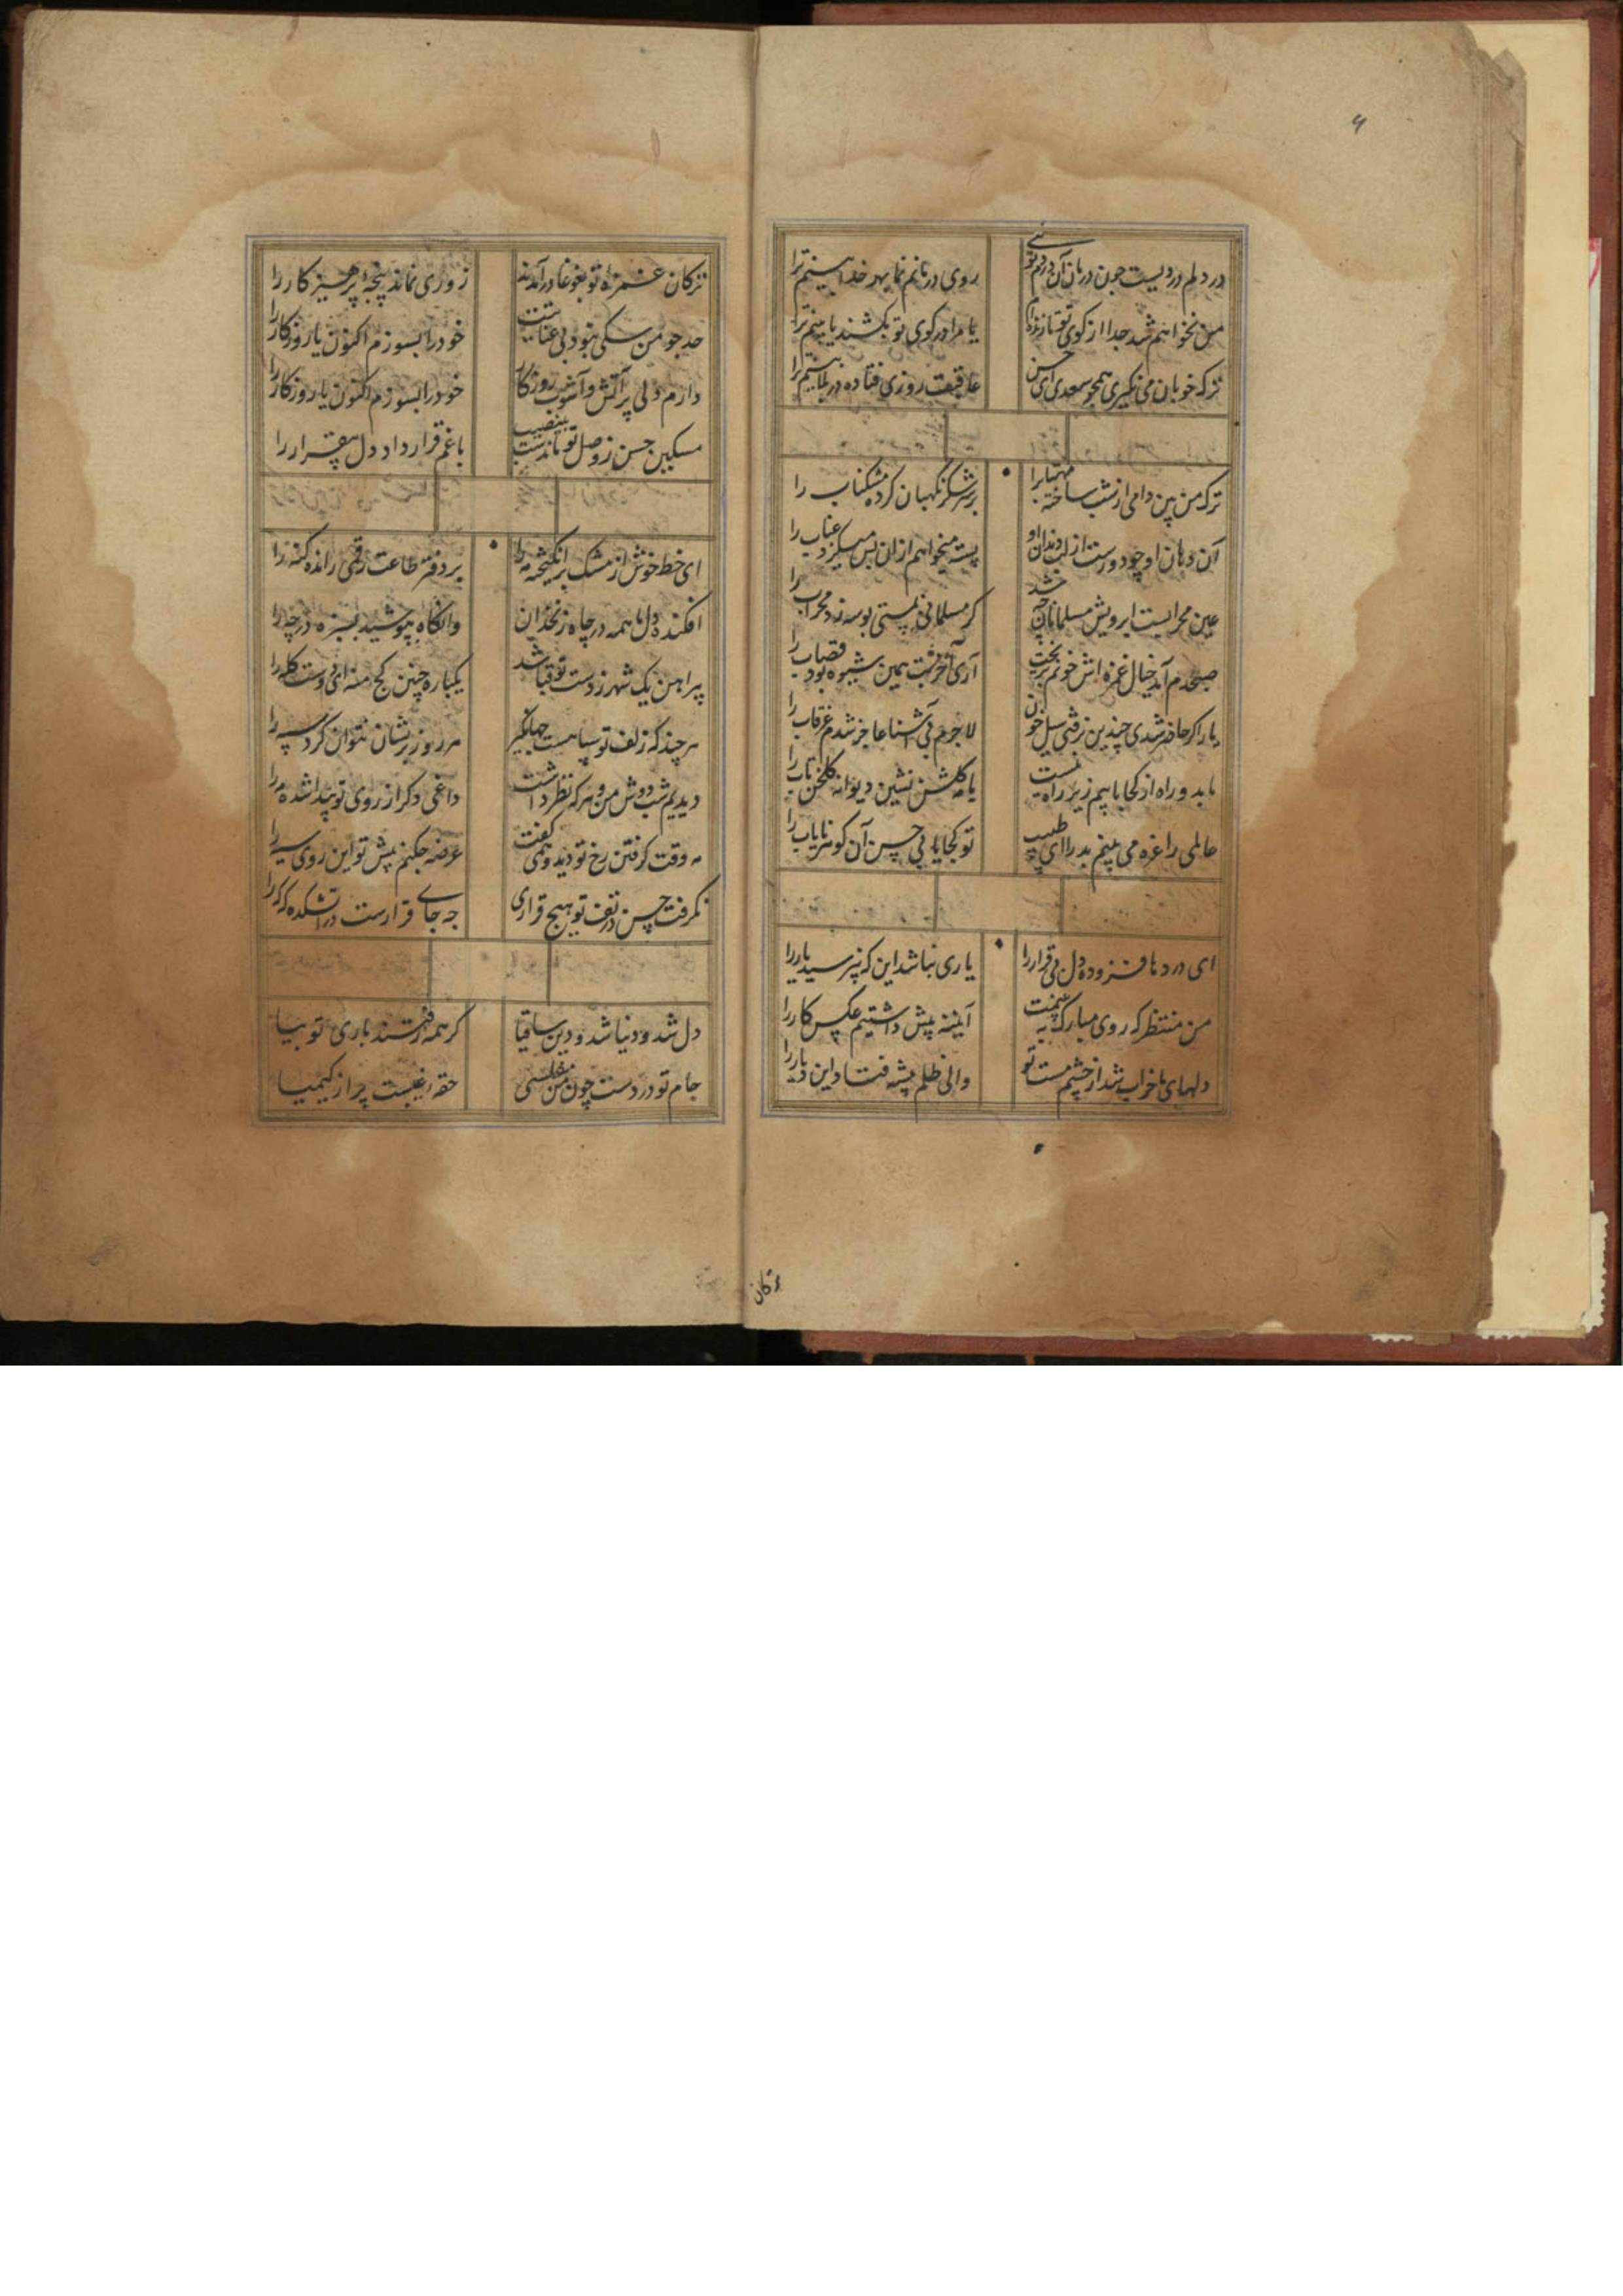 در دلم دردیست چون درمان آن دردم توئی
روی در مانم نما بهر خدا بینم ترا
من نخواهم شد جدا از کوی تو تا زنده‌ام
یا مرا در کوی تو بکشند یا بینم ترا
ترک خوبان می نگیری همچو سعدی ای حسن
عاقبت روزی فتاده در بلا بینم ترا
ترک من بین دامی از شب ساخته مهتاب را
بر شکر نگهبان کرده مشکناب را
آن دهان او چو دورست از لب و دندان او
پسته میخواهم ازان پس میگزد عناب را
عین محرابیست ابرویش مسلمانان چه شد
کر مسلمانی نیستی بوسه زد محراب را
صبحدم آمد خیال غمزه اش خونم بریخت
آری آخر شب همین شیوه بود قصاب را
یار اکر حاضر شدی چندین نرفتی سیل خون
لاجرم بی آشنا عاجز شدم غرقاب را
ما بدو راه از کجا یابیم زیرا راه نیست
با کلشن نشین دیوانه کلخن تاب را
عالمی را غره می بینم بدر ای طبیب
تو کجا یابی حسن آن کوهر نایاب را
ای درد ما فزوده دل بی قرار را
یاری نباشد این که نپرسید یار را
من منتظر که روی مبارک به بینمت
آیینه پیش داشتیم عکس کار را
دلهای ما خراب شد از چشم مست تو
والی ظلم پیشه فتاد این دیار را
ترکان
ترکان غمزه تو بغوغا در آمدند
زوری نماند پنجه پرهیزکار را
حد چو من سکی نبود بی عنایتت
خود را بسوزم اکنون یا روزکار را
دارم دلی پر آتش و آشوب روزکار
خود را بسوزم اکنون یا روزکار را
مسکین حسن ز وصل تو ماندست بینصیب
با غم قرار داد دل بیقرار را
ای خط خوش از مشک برانکیخته مه را
بر دفتر طاعت رقمی رانده کنه را
افکنده دل ما همه در چاه زنخدان
وانکاه بپوشید بسبزه در چه را
پیراهن یک شهر ز دست تو قبا شد
یکباره چنین کج منه ای دوست کله را
هر چند که زلف تو سپاهیست جهانکیر
هر روز پریشان نتوان کرد سپه را
دیدیم شب دوش من و هر که نظر داشت
داغی دکر از روی تو پیدا شده مه را
مه وقت کرفتن رخ تو دید و همی کفت
عرضه چکنم پیش تو این روی سیه را
نکرفت حسن در تف تو هیچ قراری
چه جای قرارست در آتشکده که را
دل شد و دنیا شد و دین ساقیا
کر همه رفتند باری تو بیا
جام تو در دست چون من مفلسی
حقه غیبست پر از کیمیا